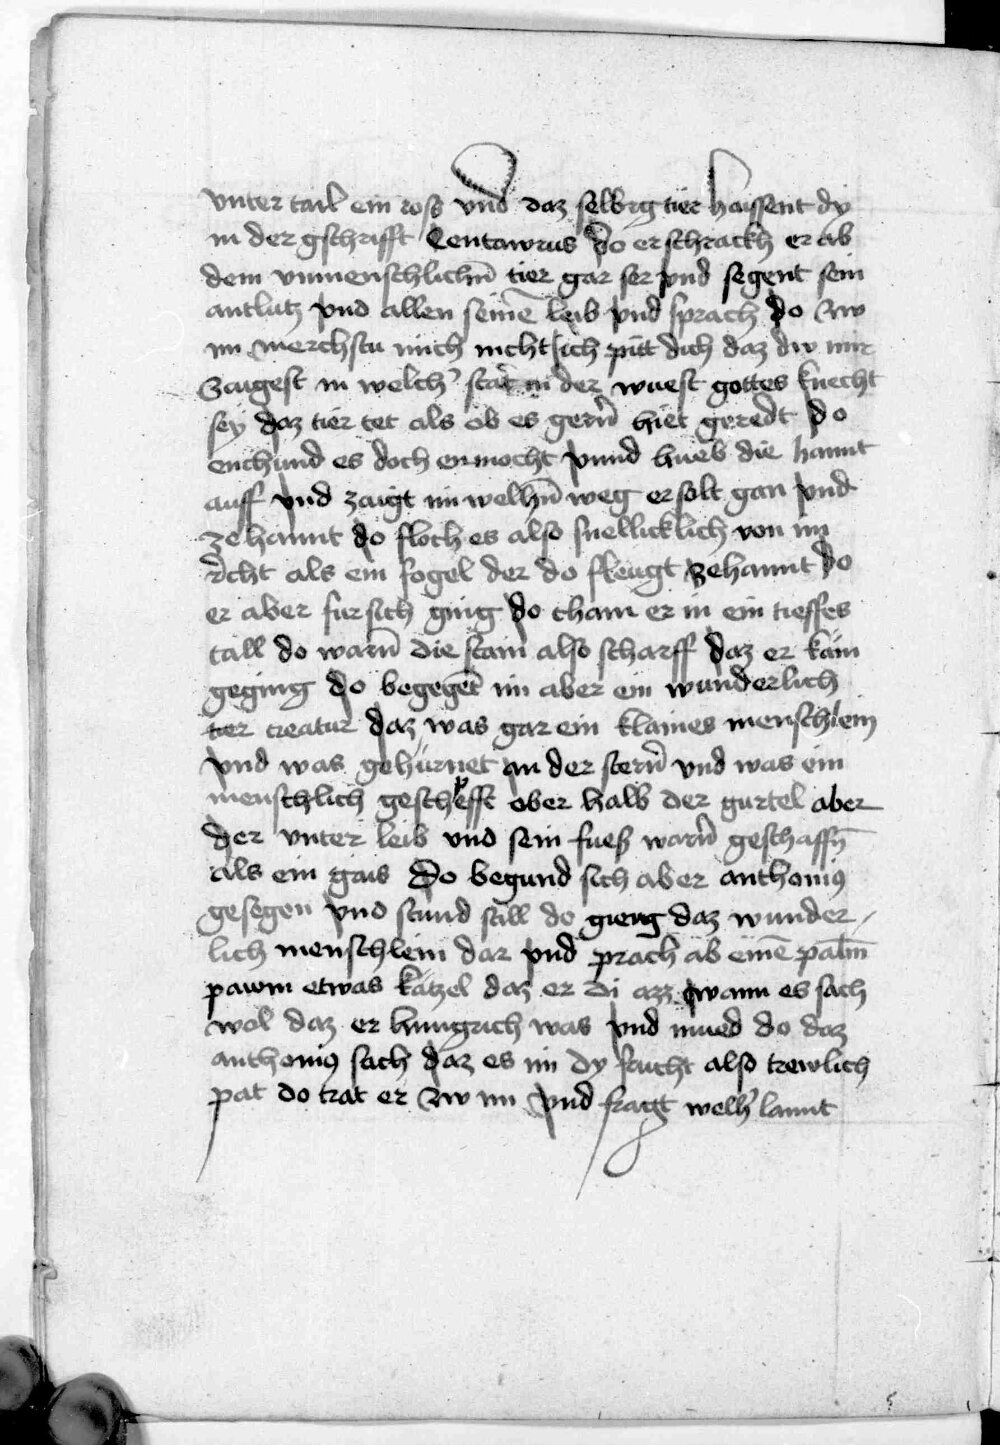 vnter tail ein ross vnd daz selbig tier haissent dy
in der gschrifft Centawrus do erschrackh er ab
dem vnmenschlichn̄ tier gar ser vnd segent sein
antlutz vnd allen seinē leib vnd sprach do zw
im merchstu mich nicht ich pitt dich daz dw mir
zaigest in welch' stat in der wuest gottes knecht
sey daz tier tet als ob es gern̄ hiet geredt do
enchund es doch en mocht vnnd hueb die hannt
auff vnd zaigt im welhn̄ weg er solt gan vnd
ze hannt do floch es also snellicklich von im
recht als ein fogel der do fleugt zehannt do
er aber fur sich ging do cham er in ein tieffes
tall do warn̄ die stain also scharff daz er kam
geging do begegēt im aber ein wunderlich
tier creatur daz was gar ein klaines menschlein
vnd was gehürnet an der stern̄ vnd was ein
menschlich geschefft ober halb der gurtel aber
der vnter leib vnd sein fuess warn̄ geschaffn̄
als ein gais Do begund sich aber anthonius
gesegen vnd stund still do gieng daz wunder /
lich menschlein dar vnd prach ab einē palm̄
pawm etwas kätzel daz er di azz wann es sach
wol daz er hungrich was vnd mued do daz
anthonius sach daz es im dy frucht also trewlich
pat do trat er zw im vnd fragt welh' lannt